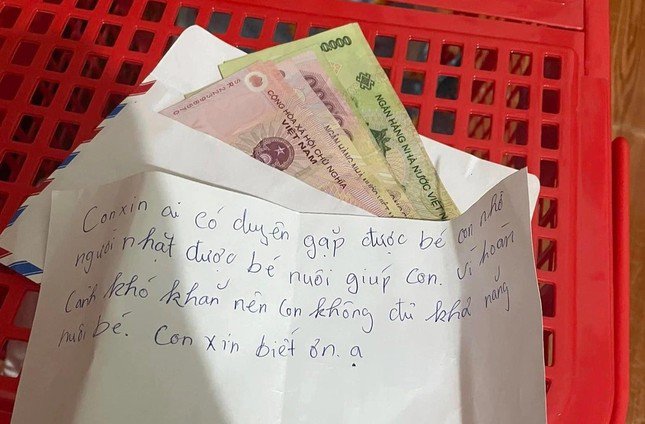 0.000
CỘNG HÒA XÃ HỘI CHỦ NGHĨA
VIỆT NAM
NGÂN HÀNG NHÀ NƯỚC VIỆT
Con xin ai có duyên gặp được bé con nhờ
người nhặt được bé nuôi giúp con. Vì hoàn
cảnh khó khăn nên con không đủ khả năng
nuôi bé. Con xin biết ơn. ạ